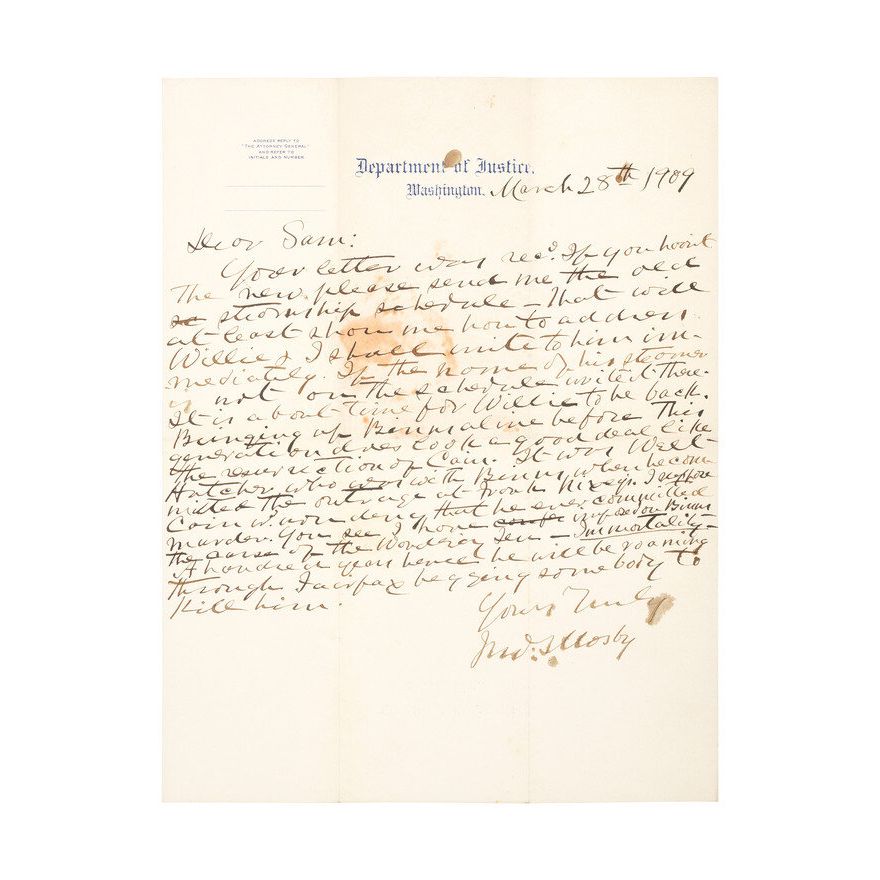 ADDRESS REPLY TO
"THE ATTORNEY GENERAL"
AND REFER TO
INITIALS AND NUMBER
Department of Justice,
Washington. March 28th 1909
Dear Sam:
Your letter was recd. If you havn't
the new please send me the old
steamship schedule – that will
at least show me how to address
Willie & I shall write to him im-
mediately. If the name of his steamer
is not on the schedule write it there.
It is about time for Willie to be back.
Bringing up Binns alive before this
generation does look a good deal like
the resurrection of Cain. It was Walt
Hatcher who was with Binns when he com-
mitted the outrage at Frank I suppose
Cain wd now deny that he ever committed
murder. You see, I have imposed on Binns
the curse of the Wandering Jew – Immortality –
A hundred years hence he will be roaming
through Fairfax begging somebody to
kill him.
Yours Truly
Jno. S. Mosby